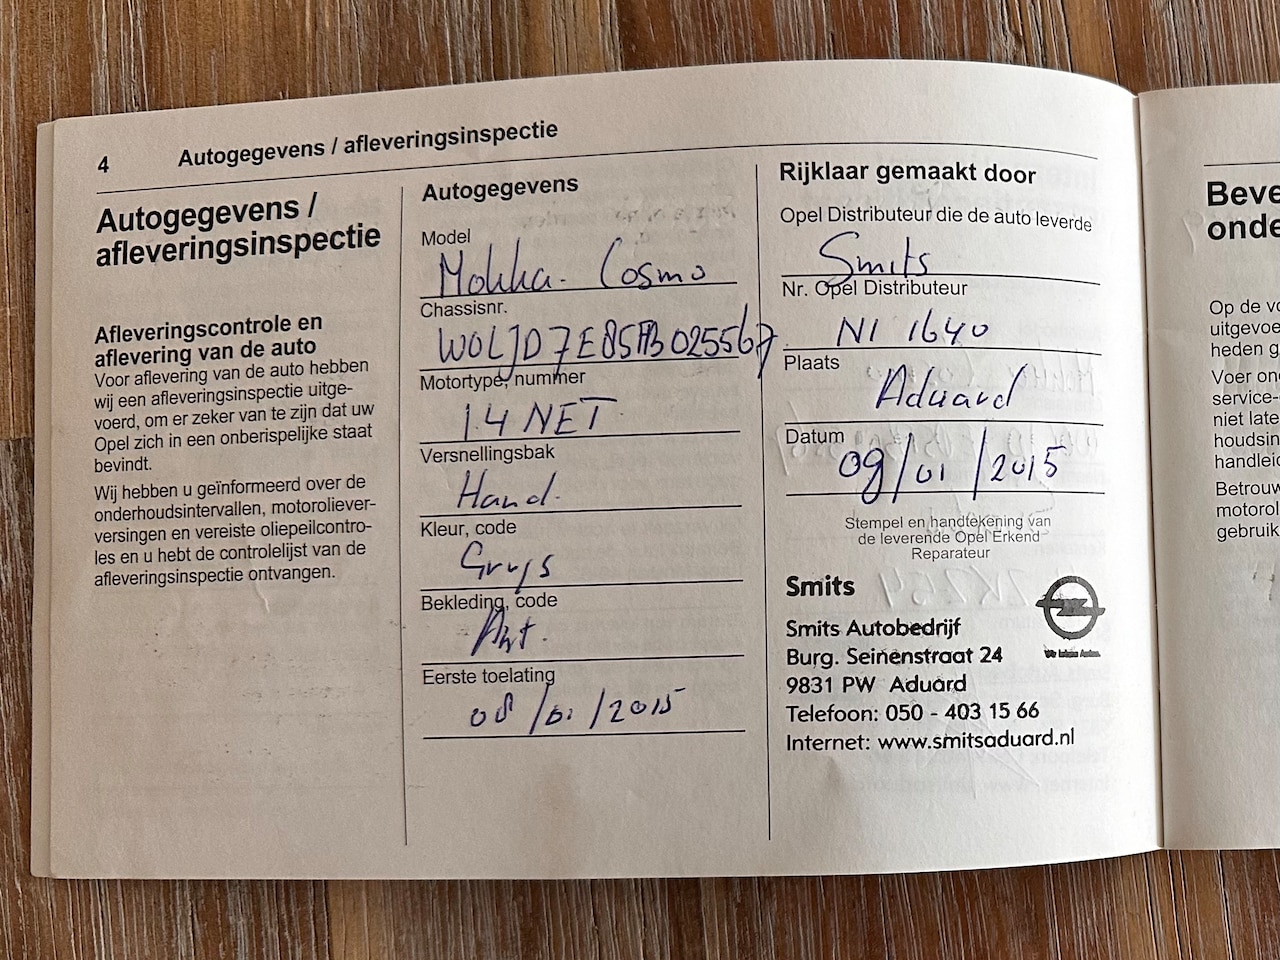 4 Autogegevens / afleveringsinspectie
Autogegevens /
afleveringsinspectie
Afleveringscontrole en
aflevering van de auto
Voor aflevering van de auto hebben
wij een afleveringsinspectie uitge-
voerd, om er zeker van te zijn dat uw
Opel zich in een onberispelijke staat
bevindt.
Wij hebben u geïnformeerd over de
onderhoudsintervallen, motoroliever-
versingen en vereiste oliepeilcontro-
les en u hebt de controlelijst van de
afleveringsinspectie ontvangen.
Autogegevens
Model
Mokka. Cosmo
Chassisnr.
W0LJD7E85FB025567
Motortype, nummer
1.4 NET
Versnellingsbak
Hand.
Kleur, code
Grijs
Bekleding, code
Ant.
Eerste toelating
08/01/2015
Rijklaar gemaakt door
Opel Distributeur die de auto leverde
Smits
Nr. Opel Distributeur
Nl 1640
Plaats
Aduard
Datum
09/01/2015
Stempel en handtekening van
de leverende Opel Erkend
Reparateur
Smits
Smits Autobedrijf
Burg. Seinenstraat 24
9831 PW Aduard
Telefoon: 050 - 403 15 66
Internet: www.smitsaduard.nl
Wir leben Autos.
Beve
onde
Op de vo
uitgevoe
heden g
Voer ond
service-
niet late
houdsin
handleid
Betrouw
motorol
gebruik